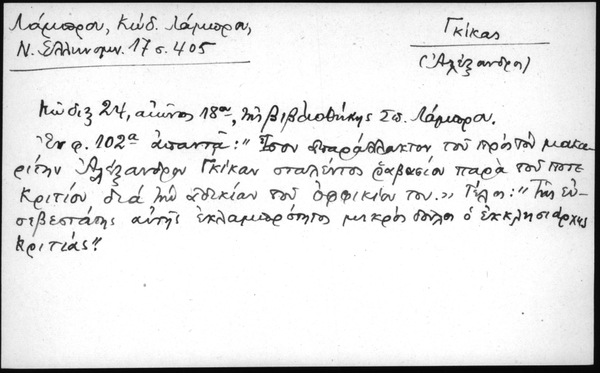 Λάμπρου, Κώδ. Λάμπρου,
Ν. Ἑλληνομν. 17 σ. 405
Γκίκας
(Ἀλέξανδρος)
Κώδιξ 24, αἰῶνος 18ου, τῆς βιβλιοθήκης Σπ. Λάμπρου.
Ἐν φ. 102α ἀπαντᾷ: "Ἴσον ἀπαράλλακτον τοῦ πρὸς τὸν μακα-
ρίτην Ἀλέξανδρον Γκίκαν σταλέντος ῥαβασίου παρὰ τοῦ ποτε
Κριτίου διὰ τὴν ἀδικίαν τοῦ ὀφφικίου του.» Τέλος: "Τῆς εὐ-
σεβεστάτης αὐτῆς ἐκλαμπρότητος μικρὸς δοῦλος ὁ ἐκκλησιάρχης
Κριτίας".